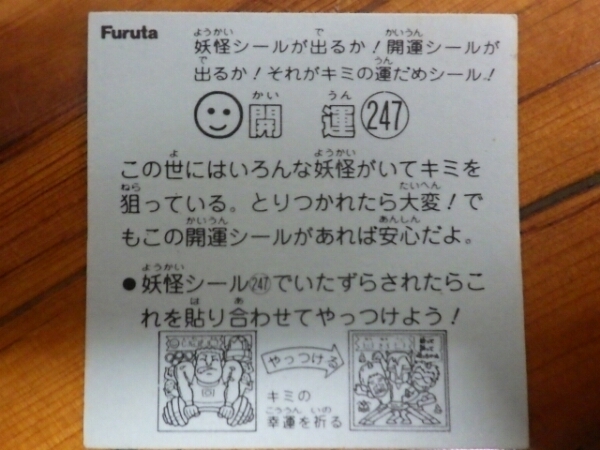 Furuta
妖怪シールが出るか！開運シールが
出るか！それがキミの運だめシール！
開運 247
この世にはいろんな妖怪がいてキミを
狙っている。とりつかれたら大変！で
もこの開運シールがあれば安心だよ。
●妖怪シール247でいたずらされたらこ
れを貼り合わせてやっつけよう！
やっつける
キミの
幸運を祈る